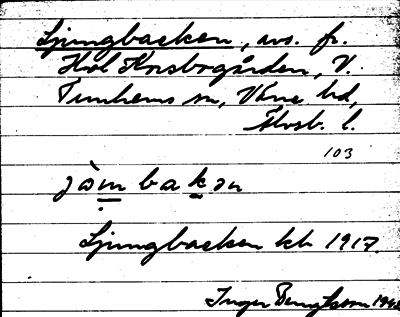 Ljungbacken, avs. fr.
Hol Korsbogården, V.
Tunhems sn, Väne hd,
Älvsb. l.
103
jòm bakən
Ljungbacken kb 1917.
Inger Bengtsson